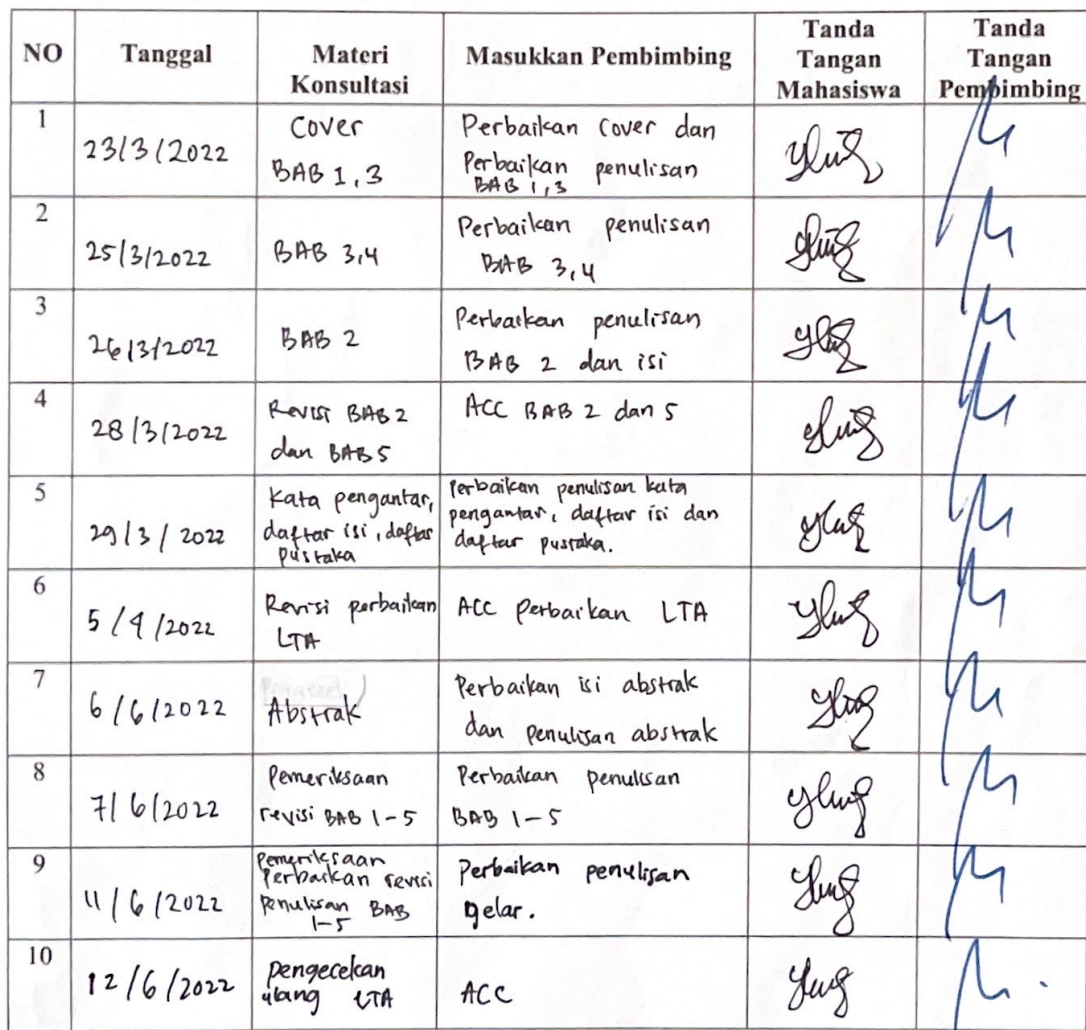 NO Tanggal Materi Konsultasi Masukkan Pembimbing Tanda Tangan Mahasiswa Tanda Tangan Pembimbing
1
23/3/2022
Cover
BAB 1,3
Perbaikan Cover dan
Perbaikan penulisan
BAB 1,3
2
25/3/2022
BAB 3,4
Perbaikan penulisan
BAB 3,4
3
26/3/2022
BAB 2
Perbaikan penulisan
BAB 2 dan isi
4
28/3/2022
Revisi BAB 2
dan BAB 5
ACC BAB 2 dan 5
5
29/3/2022
Kata pengantar,
daftar isi, daftar
pustaka
Perbaikan penulisan kata
pengantar, daftar isi dan
daftar pustaka.
6
5/4/2022
Revisi perbaikan
LTA
ACC Perbaikan LTA
7
6/6/2022
Abstrak
Perbaikan isi abstrak
dan penulisan abstrak
8
7/6/2022
Pemeriksaan
revisi BAB 1-5
Perbaikan penulisan
BAB 1-5
9
11/6/2022
Pemeriksaan
Perbaikan revisi
Penulisan BAB
1-5
Perbaikan penulisan
gelar.
10
12/6/2022
Pengecekan
ulang LTA
ACC